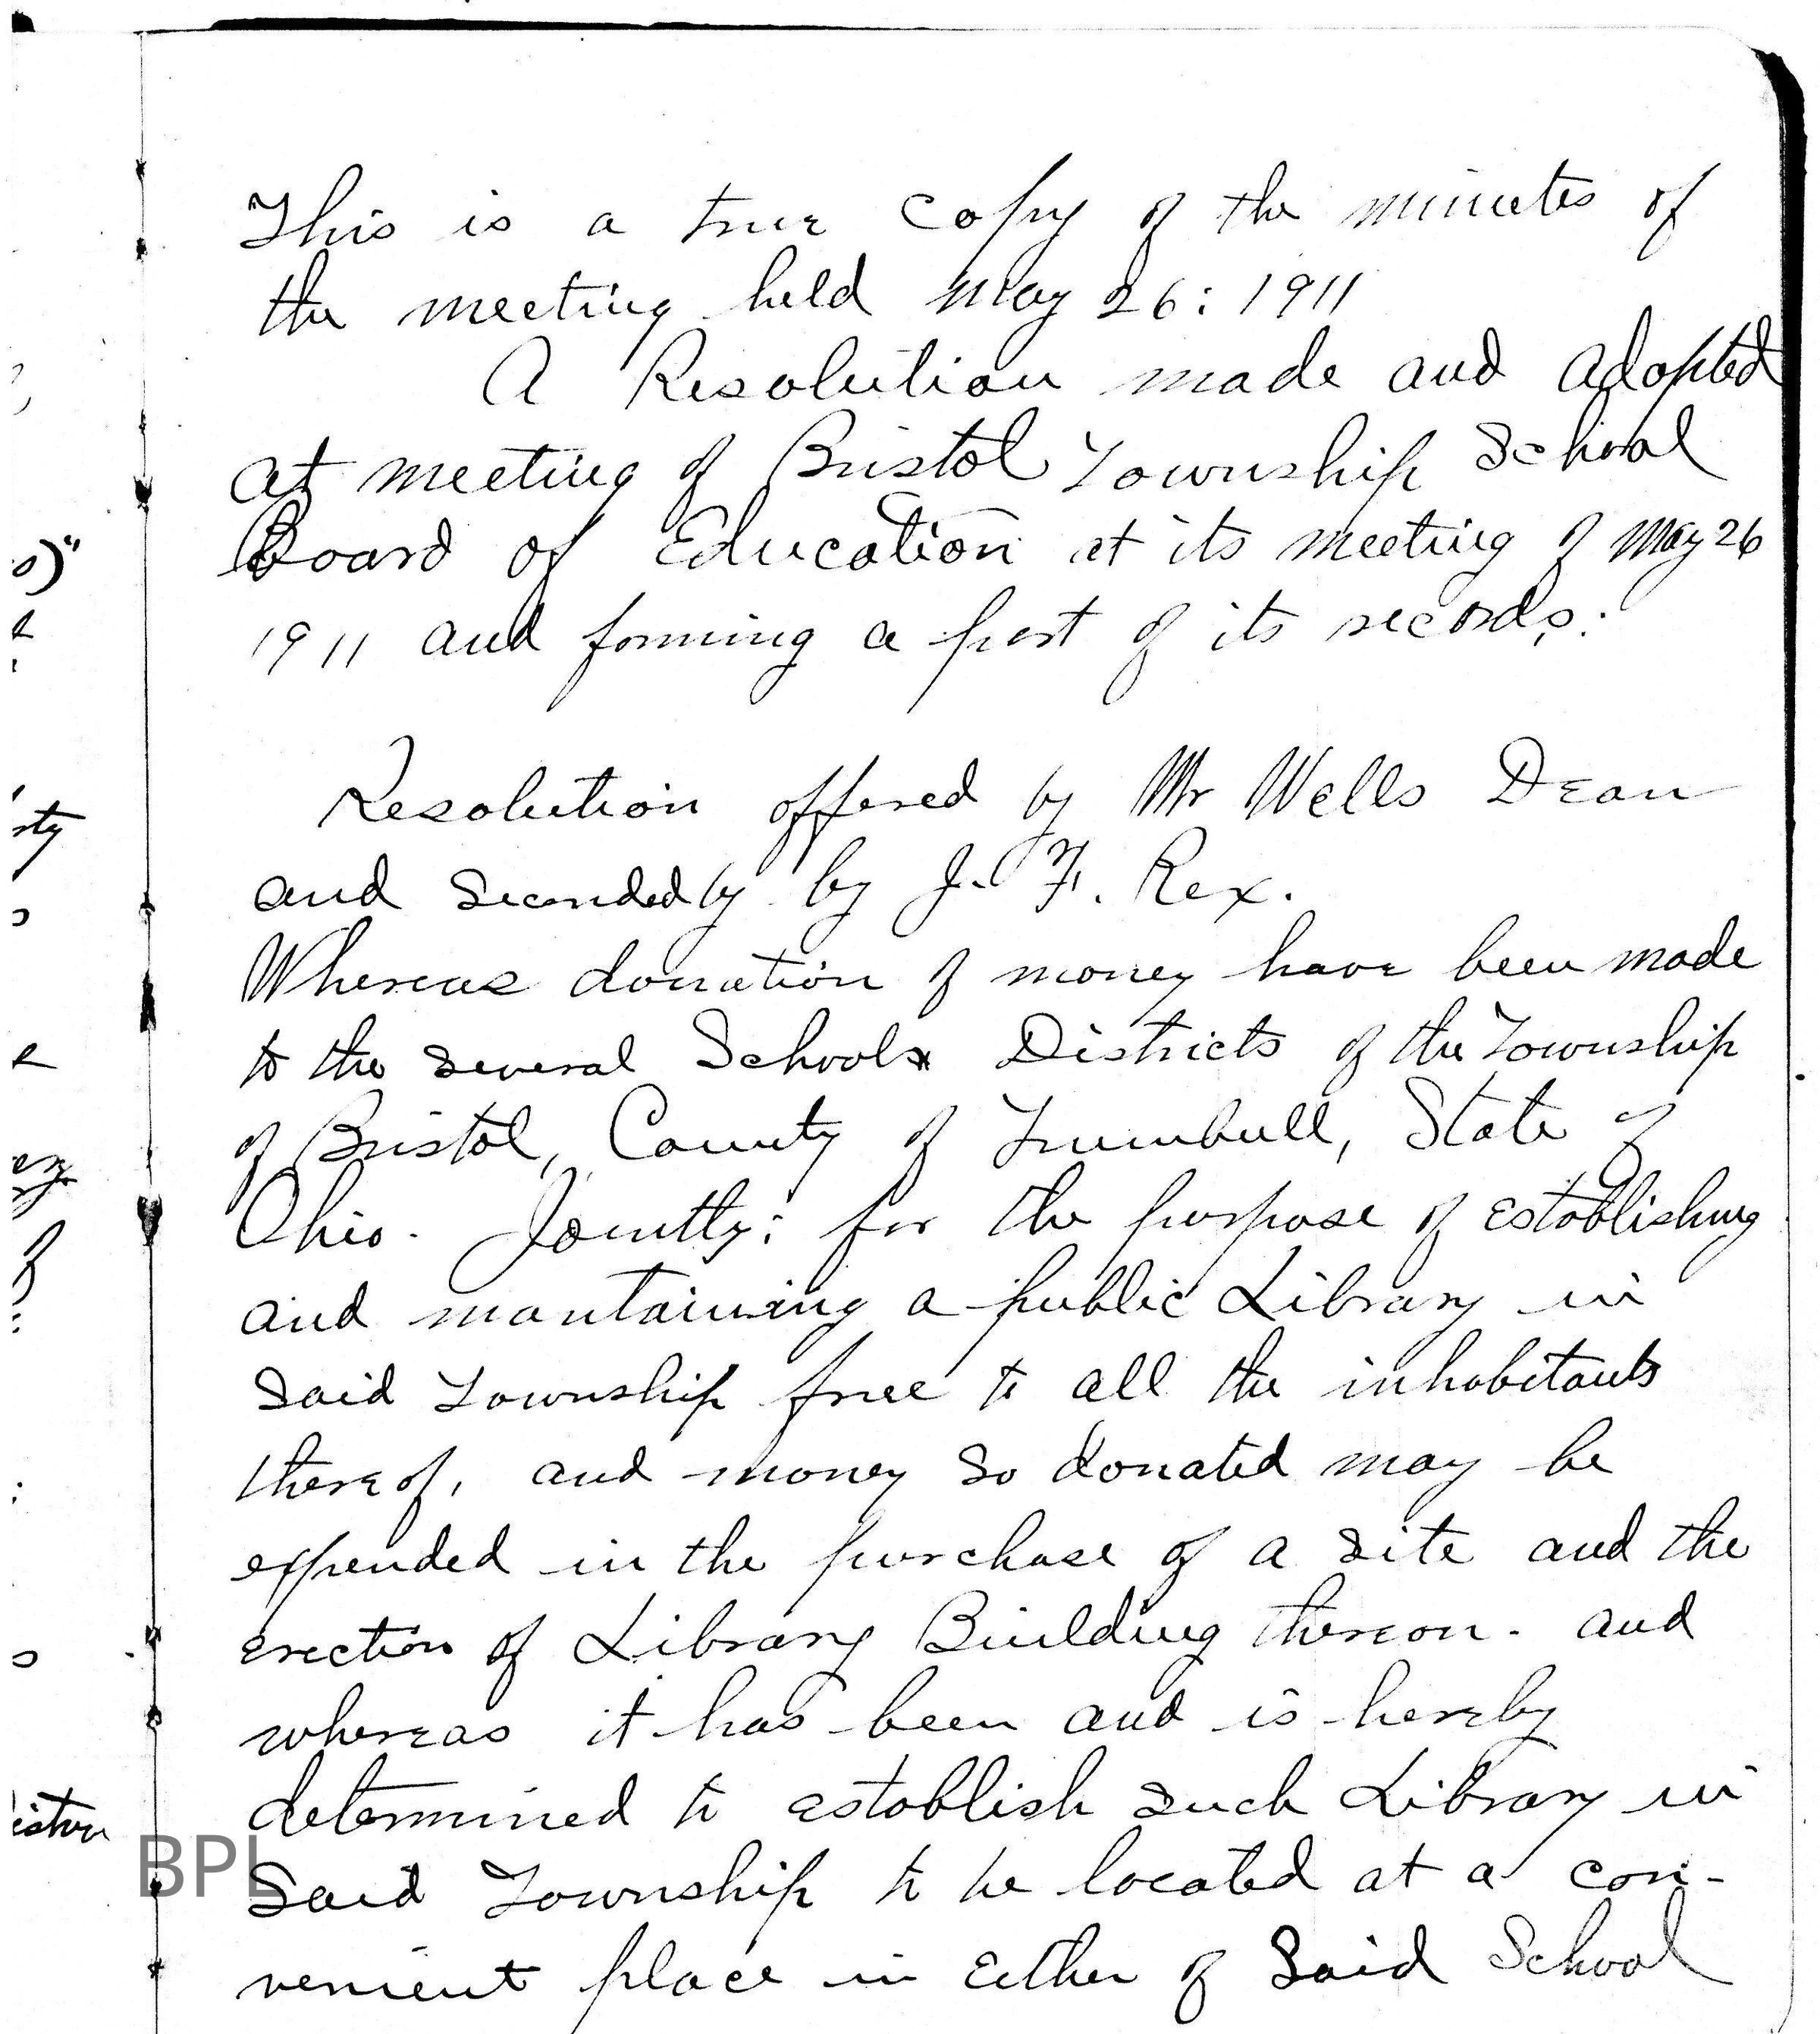 This is a true copy of the minutes of
the meeting held May 26: 1911
A Resolution made and adopted
at meeting of Bristol Township School
Board of Education at its meeting of May 26
1911 and forming a part of its records:
Resolution offered by Mr Wells Dean
and secondedby by J. F. Rex.
Whereas donation of money have been made
to the several Schools Districts of the Township
of Bristol, County of Trumbull, State of
Ohio. Jointly: for the purpose of establishing
and mantaining a public Library in
Said Township free to all the inhabitants
thereof, and money so donated may be
expended in the purchase of a site and the
erection of Library Building thereon. and
whereas it has been and is hereby
determined to establish such Library in
Said Township to be located at a con-
venient place in either of Said School
BPL